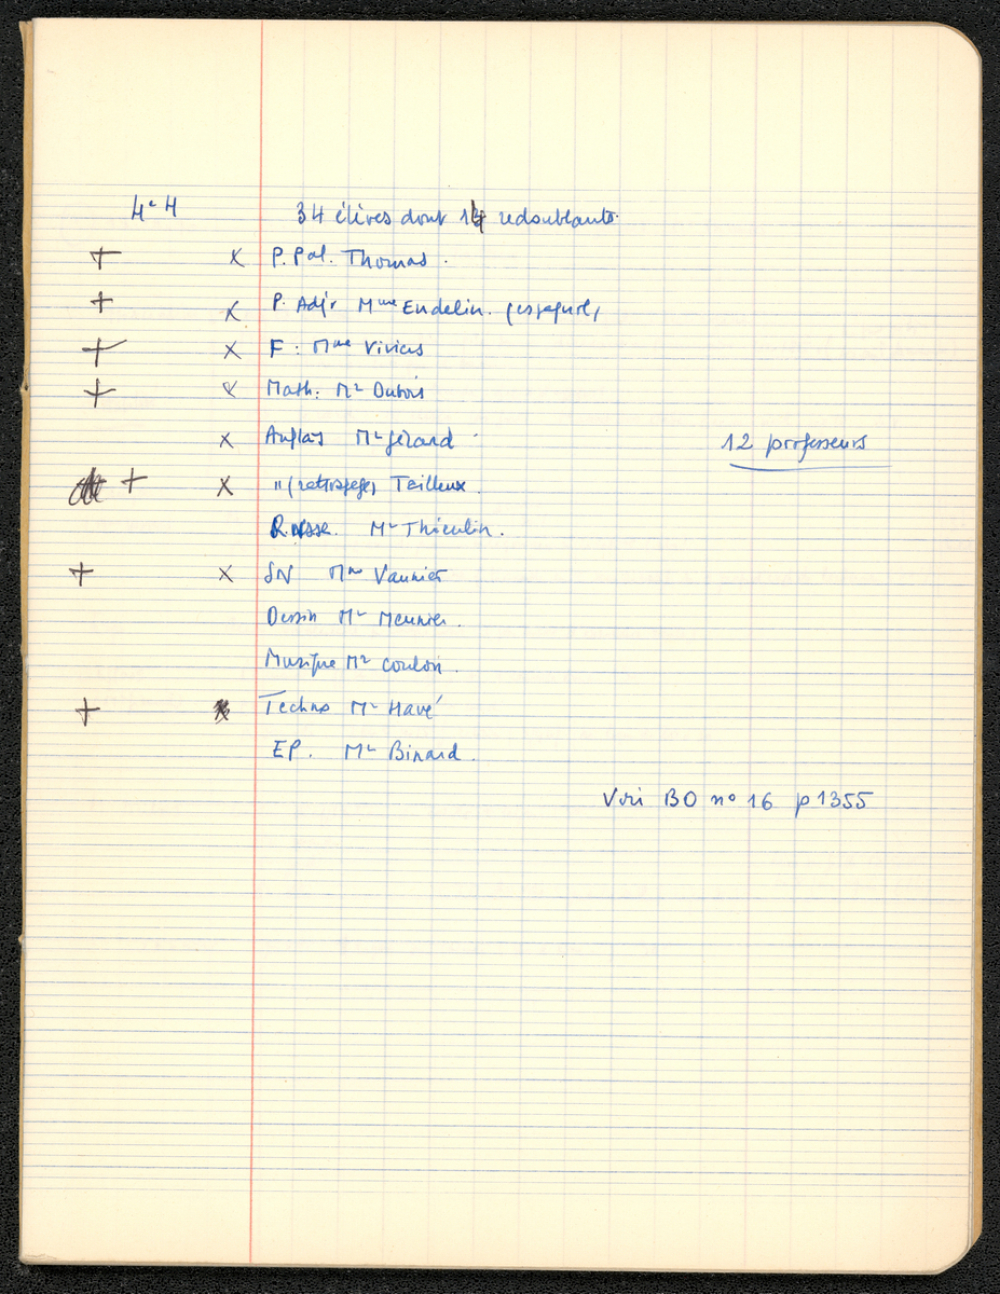 4e 4
34 élèves dont 14 redoublants.
+ x P. Pal. Thomas.
+ x P. Adjt Mme Endelin. (espagnol)
+ x F : Mme Viviers
+ x Math : Mr Dubois
x Anglais Mr Gérard
12 professeurs
+ x " (rattrapage) Tailleux.
Russe. Mr Thieulin.
+ x SN Mme Vaunier
Dessin Mr Meunier.
Musique Mr Coulon.
+ Techno Mr Havé
EP. Mr Binard.
Voir BO no 16 p 1355